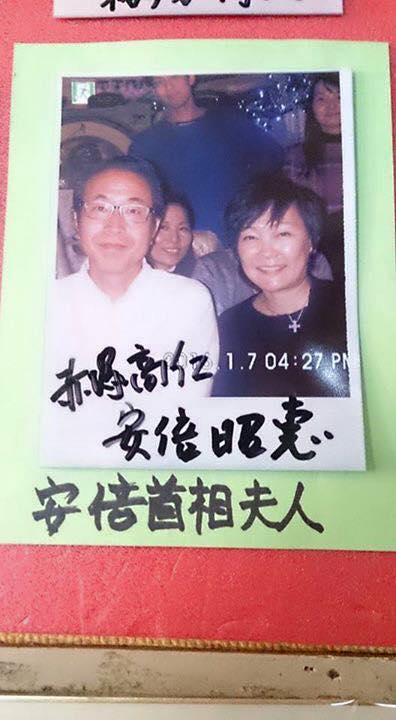 赤塚高仁
.1.7 04:27 PM
安倍昭恵
安倍首相夫人